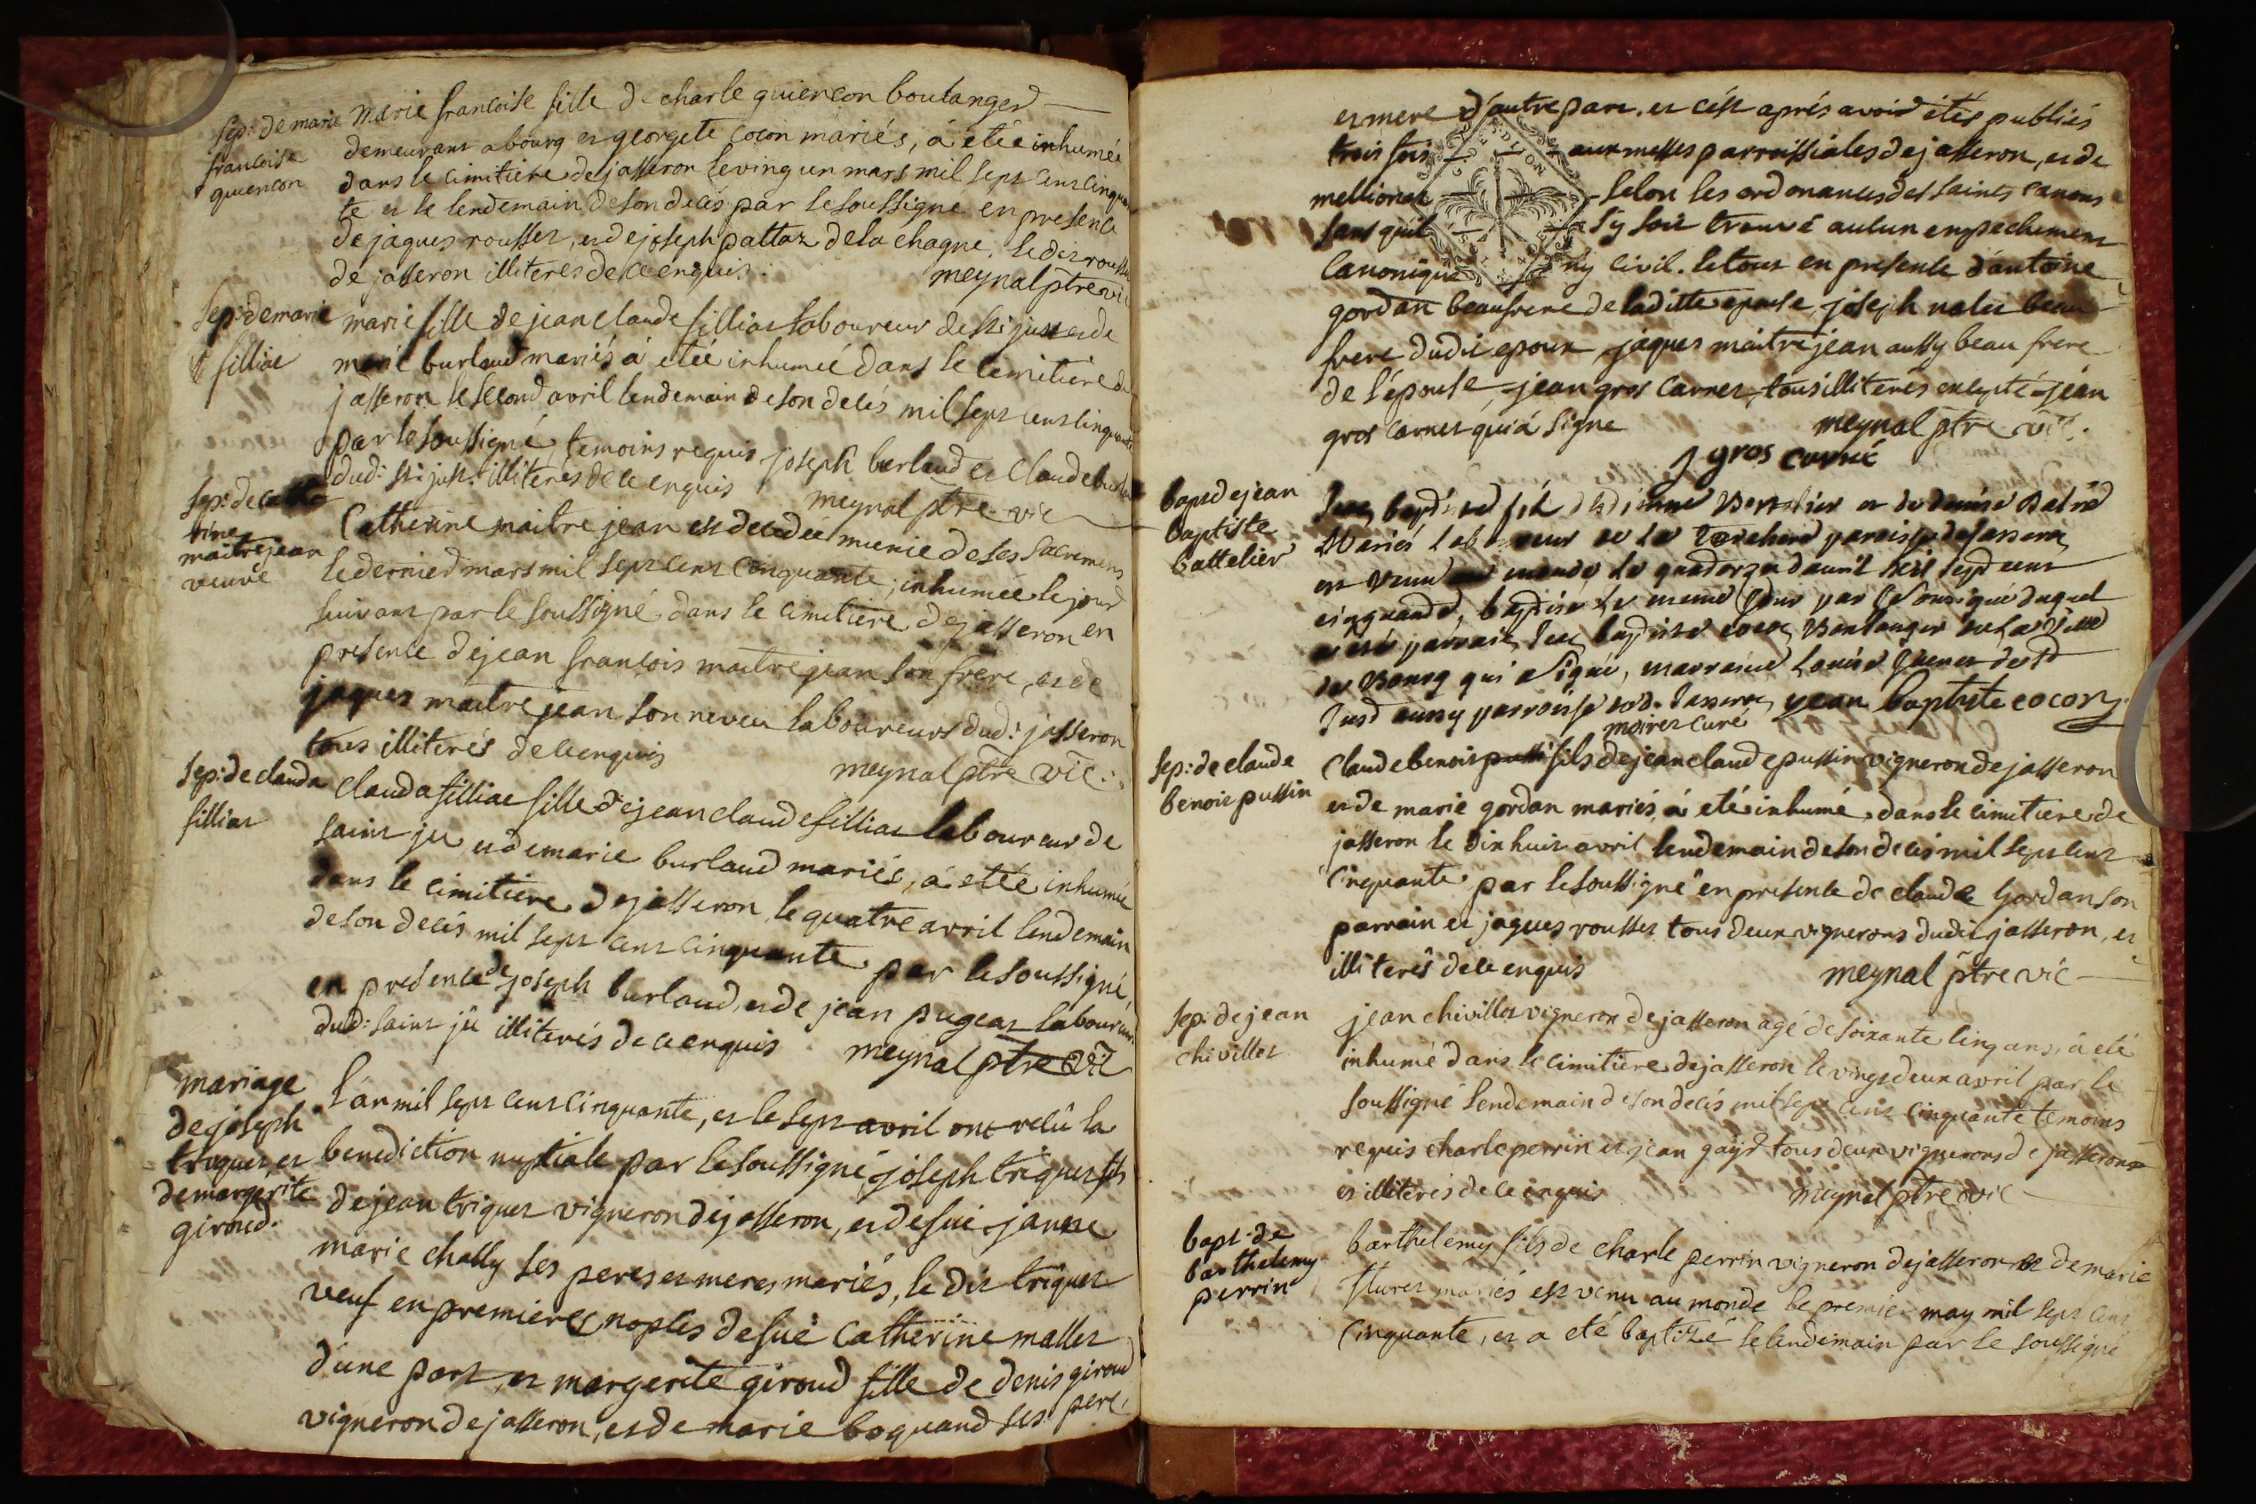 sep: de marie
francoise
quiencon
marie francoise fille de charle quiencon boulanger
demeurant a bourg et georgete cocon mariés, á etée inhumée
dans le cimitiere de jasseron le ving un mars mil sept cent cinquan
te et le lendemain de son decés par le soussigné en presence
de jaques rousset, et de joseph pattaz de la chagne. le dit rousset
de jasseron illiteres de ce enquis. meynal ptre vic
sep: de marie
filliat
marie fille de jean claude filliat laboureur de st just et de
marie burlaud mariés á etée inhumée dans le cemitiere de
jasseron le second avril lendemain de son decés mil sept cent cinquante
par le soussigné, temoins requis joseph burlaud et claude
dud: st just. illiteres de ce enquis meynal ptre vic
sep: de cathe
rine
maitrejean
veuve
Catherine maitre jean est decedee munie de ses sacremens
le dernier mars mil sept cent cinquante, inhumée le jour
suivant par le soussigné dans le cimitiere de jasseron en
presence de jean francois maitre jean son frere, et de
jaques maitre jean son neveu laboureurs dud: jasseron
tous illiterés de ce enquis meynal ptre vic:
sep: de clauda
filliat
Clauda filliat fille de jean claude filliat laboureur de
saint ju et de marie burlaud mariés, á etée inhumée
dans le cimitiere de jasseron le quatre avril lendemain
de son decés mil sept cent cinquante par le soussigné,
en presence de joseph burlaud, et de jean pugeat laboureur
dud: saint jû illiterés de ce enquis meynal ptre vic
mariage
de joseph
triquet, et
de margerite
giroud.
L'an mil sept cent cinquante, et le sept avril ont recû la
benediction nuptiale par le soussigné joseph triquet fils
de jean triquet vigneron de jasseron, et de fuë jeanne
marie chally ses peres et meres mariés, le dit triquet
veuf en premieres noples de fuë Catherine mallet
d'une part, et margerite giroud fille de denis giroud
vigneron de jasseron, et de marie boquand ses pere
et mere d'autre part. et cést aprés avoir étés publiés
trois fois aux messes parroissiales de jasseron, et de
mellionat selon les ordonances des saints canons
sans qu'il s'y soit trouvé aulun empechement
canonique ny civil. le tout en presente d'antoine
gordan beaufrere de laditte epouse, joseph nalet beau
frere dudit epoux jaques maitre jean aussy beau frere
de l'épouse, jean gros carnet, tous illiterés exlepté jean
gros carnet qui á signe meynal ptre vic.
j gros carné
bapt de jean
baptiste
battelier
cinquante, baptisé le meme jour par le soussigné duquel
a été parrain Jean baptiste cocon Boulanger de la Ville
de Bourg qui a signé, marraine
Just aussy parroisse dud. Jasseron jean baptiste cocon
moiret curé
sep: de claude
benoit pussin
Claude benoit fils de jean claude pussin vigneron de jasseron
et de marie gordan mariés á eté inhumé dans le cimitiere de
jasseron le dix huit avril lendemain de son decés mil sept cent
cinquante par le soussigné en presente de claude gordan son
parrain et jaques rousset tous deux vignerons dudit jasseron, et
illiterés de ce enquis meynal ptre vic
sep: de jean
chivillet
jean chivillet vigneron de jasseron agé de soixante cinq ans, á eté
inhumé dans le cimitiere de jasseron le vingt deux avril par le
soussigné lendemain de son decés mil sept cent cinquante temoins
requis charle perrin et jean gayd tous deux vignerons de jasseron
et illiterés de ce enquis meynal ptre vic
bapt: de
barthelemy
perrin
barthelemy fils de charle perrin vigneron de jasseron et de marie
mariés est venu au monde le premier may mil sept cent
cinquante, et a eté baptizé le lendemain par le soussigné